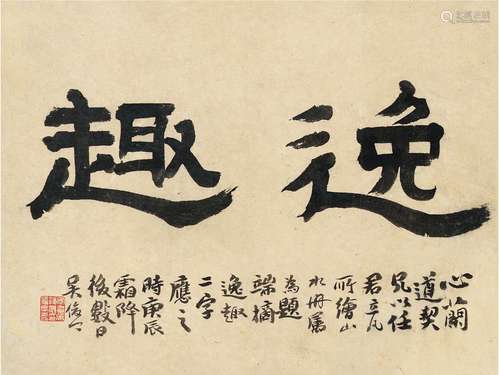 逸趣
心蘭
道契
兄以任
君立凡
所繪山
水冊屬
為題
端摘
逸趣
二字
應之
時庚辰
霜降
後數日
吳俊